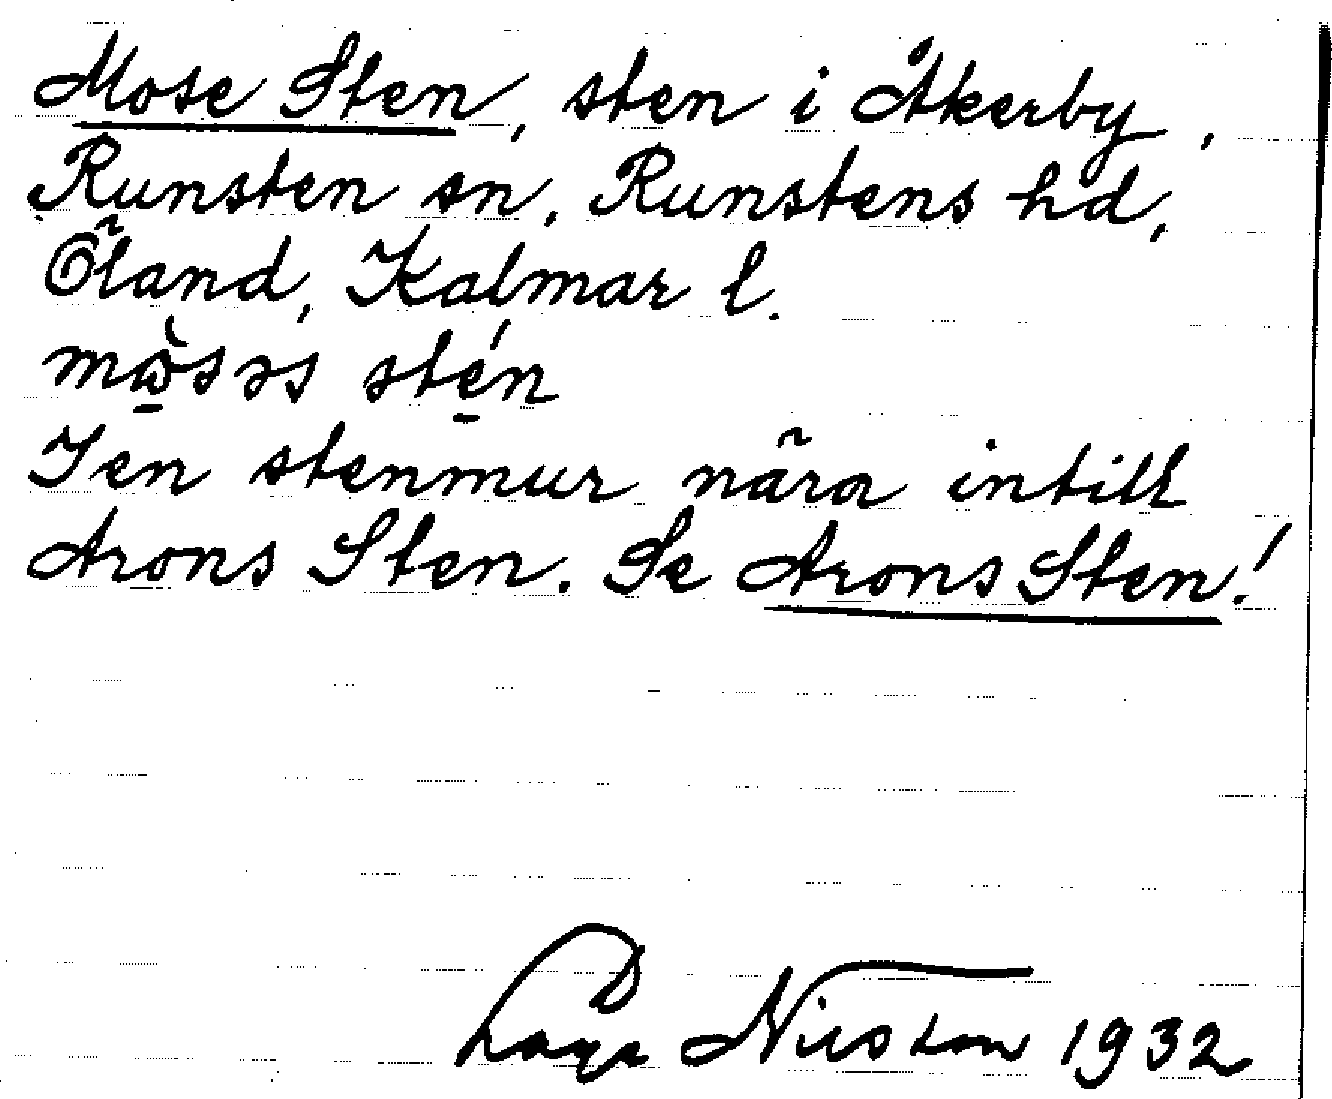 Mose Sten, sten i Åkerby,
Runsten sn, Runstens hd,
Öland, Kalmar l.
mὼsəs stén
I en stenmur nära intill
Arons Sten. Se Arons Sten!
Nilsson 1932